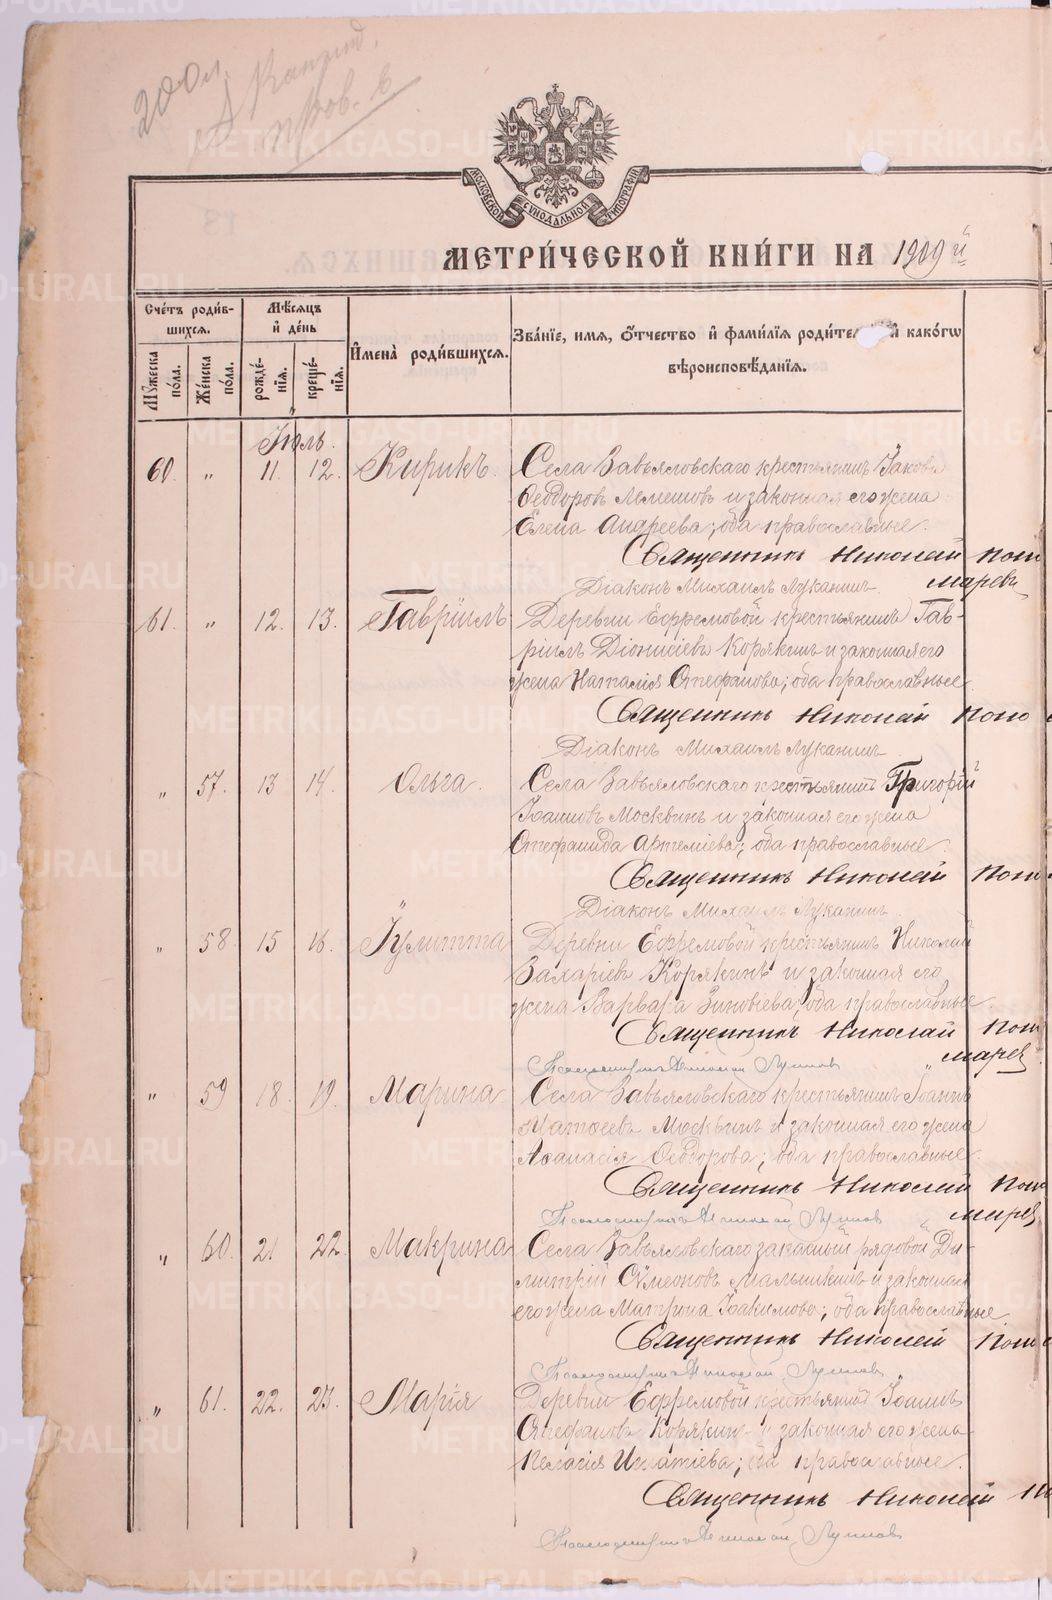 200 л
МОСКОВСКОЙ СѴНОДАЛЬНОЙ ТИПОГРАФІИ
МЕТРИ́ЧЕСКОЙ КНИ́ГИ НА 1909 й
Сче́тъ роди́в-
шихсѧ.
Мѣ́сѧцъ
и҆ де́нь
И҆мена̀ роди́вшихсѧ.
Зва́нїе, и҆мѧ, ѻ҆́тчество и҆ фами́лїѧ роди́тел й какогѡ
вѣроисповѣ́данїѧ.
Мꙋ́жеска по́ла.
Же́нска по́ла.
рожде́-нїѧ.
креще́-нїѧ.
Іюль.
60. " 11. 12. Кирикъ. Села Завьяловскаго крестьянинъ Іаковъ
Ѳеодоровъ Лемешовъ и законная его жена
Елена Андреева; оба православные.
Священникъ Николай Поно
маревъ
Діаконъ Михаилъ Луканинъ
61. " 12. 13. Гавріилъ Деревни Ефремовой крестьянинъ Гав-
ріилъ Діонисіевъ Корякинъ и законная его
жена Наталія Стефанова; оба православные.
Священникъ Николай Поно
Діаконъ Михаилъ Луканинъ
" 57. 13 14. Ольга. Села Завьяловскаго крестьянинъ Григорій
Іоанновъ Москвинъ и законная его жена
Стефанида Артеміева; оба православные.
Священникъ Николай Поно
Діаконъ Михаилъ Луканинъ
" 58. 15 16. Іулитта Деревни Ефремовой крестьянинъ Николай
Захаріевъ Корякинъ и законная его
жена Варвара Зиновіева; оба православные.
Священникъ Николай Поно
марев
Псаломщикъ Лупповъ
" 59 18. 19. Марина Села Завьяловскаго крестьянинъ Іоаннъ
Матѳеевъ Москвинъ и законная его жена
Аѳанасія Ѳеодорова; оба православные.
Священникъ Николай Поно
марев
Псаломщикъ Лупповъ
" 60. 21 22. Макрина Села Завьяловскаго запасный рядовой Ди-
митрій Сѵмеоновъ Малышкинъ и законная
его жена Матрона Іоакимова; оба православные.
Священникъ Николай Поно
Псаломщикъ Лупповъ
" 61. 22. 23. Марія Деревни Ефремовой крестьянинъ Іоаннъ
Стефановъ Корякинъ и законная его жена
Пелагія Игнатіева; оба православные.
Священникъ Николай По
Псаломщикъ Лупповъ
METRIKI.GASO-URAL.RU